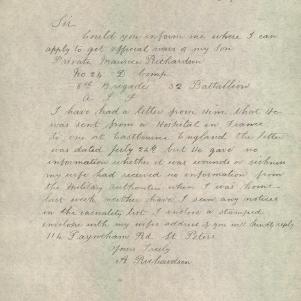 Sir
Could you inform me where I can
apply to get official news of my Son
Private Maurice Richardson
No 24 D Comp
8th Brigade 32 Battallion
A I F
I have had a letter from Him that He
was sent from a Hospital in France
to one at Eastbourne England the letter
was dated July 22th but He gave no
information whether it was wounds or sickness
my wife had received no information from
the Military Authorities when I was home
last week neither have I seen any notices
in the but I enclose a stamped
envelope with my wifes address if you will kindly reply
114 Payneham Rd St Peters
Yours Truly
A Richardson